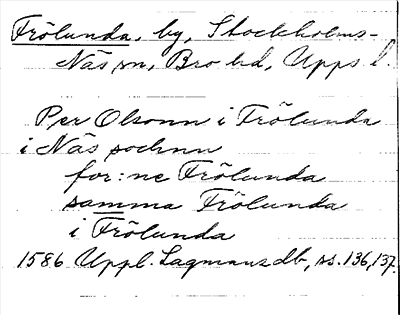 Frölunda, by, Stockholms-
Näs sn, Bro hd, Upps l.
Per Olsonn i Frölunda
i Näs sochnn
for:ne Frölunda
samma Frölunda
i Frölunda
1586 Uppl. Lagmansdb, ss. 136, 137.